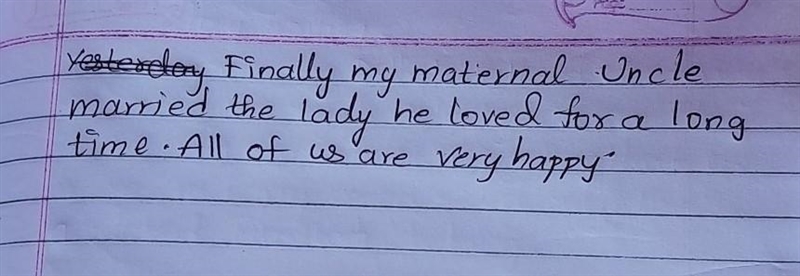 Yesterday Finally my maternal Uncle
married the lady he loved for a long
time. All of us are very happy.